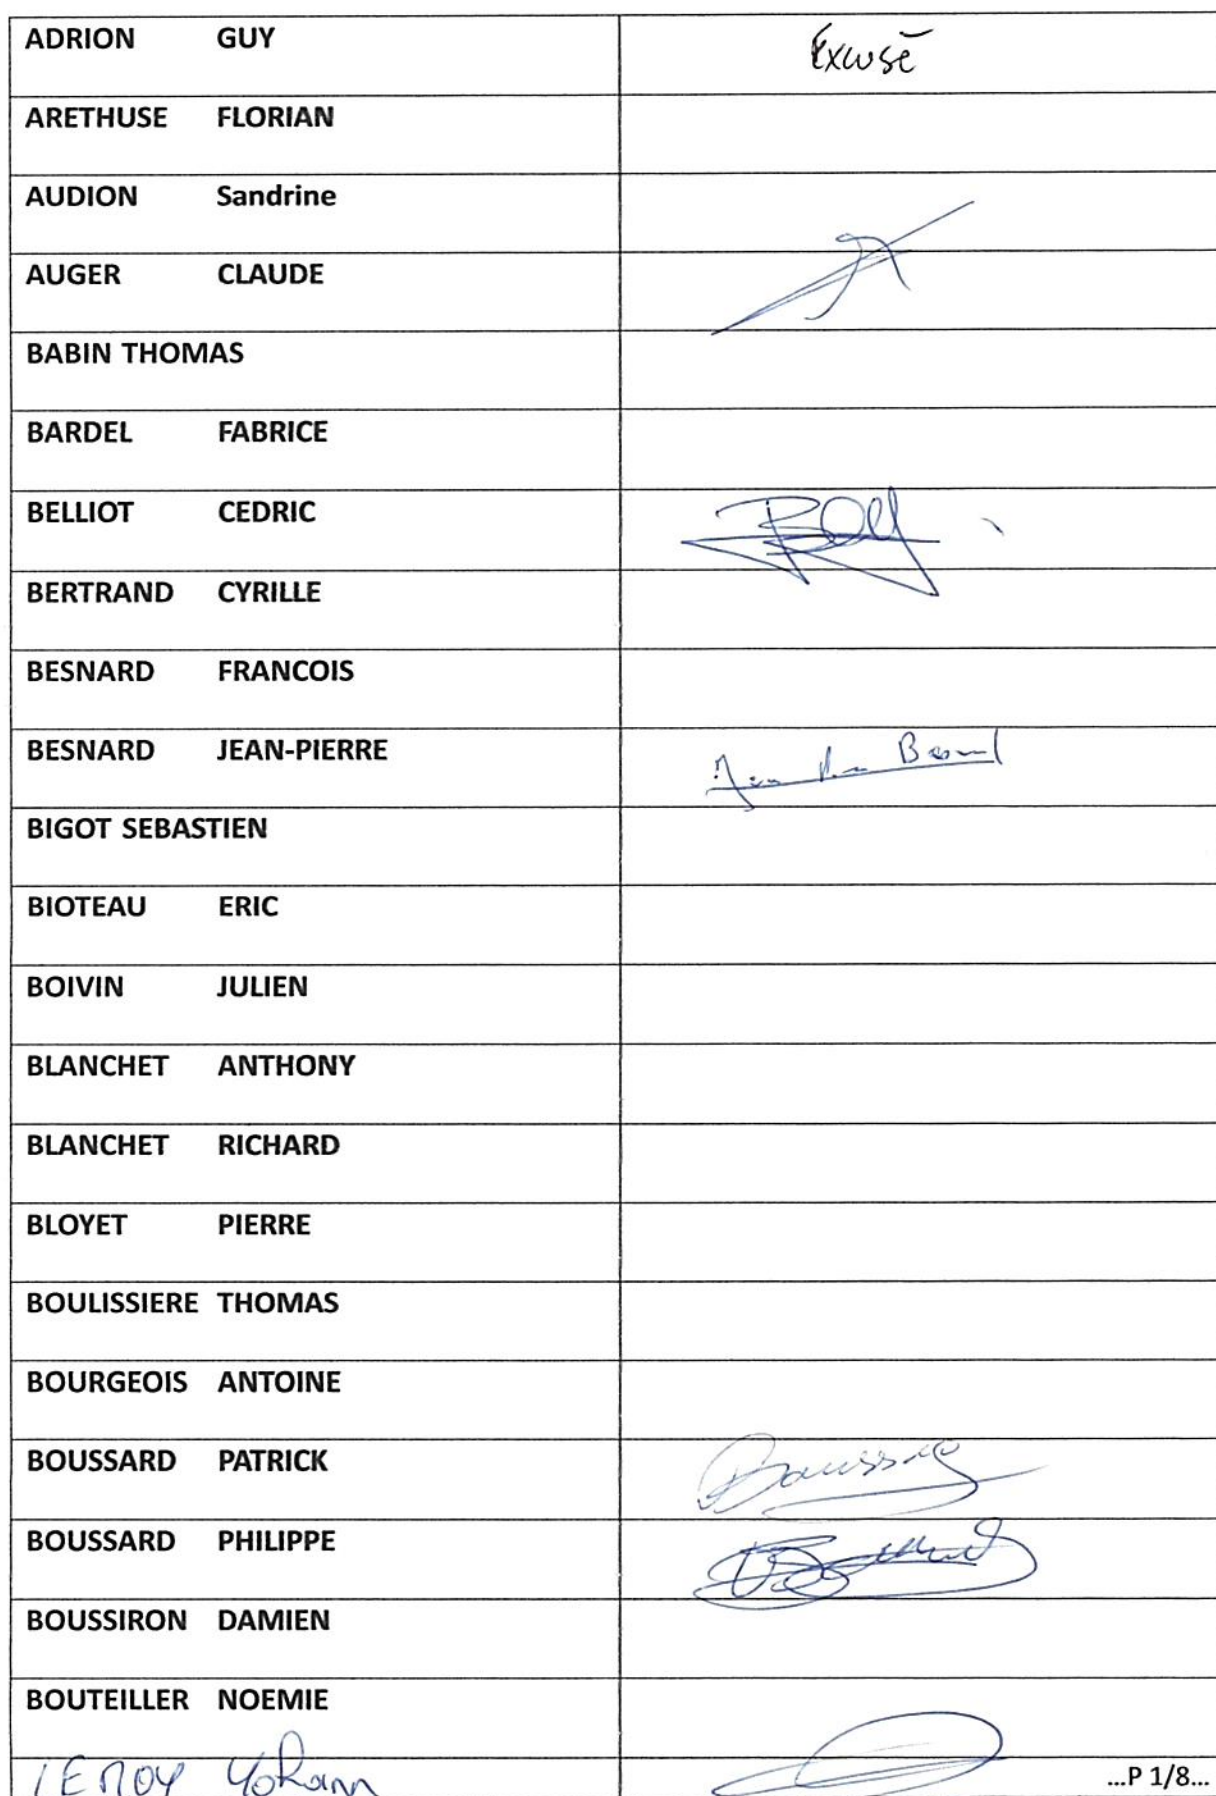 ADRION GUY Excusé
ARETHUSE FLORIAN
AUDION Sandrine
AUGER CLAUDE
BABIN THOMAS
BARDEL FABRICE
BELLIOT CEDRIC
BERTRAND CYRILLE
BESNARD FRANCOIS
BESNARD JEAN-PIERRE
BIGOT SEBASTIEN
BIOTEAU ERIC
BOIVIN JULIEN
BLANCHET ANTHONY
BLANCHET RICHARD
BLOYET PIERRE
BOULISSIERE THOMAS
BOURGEOIS ANTOINE
BOUSSARD PATRICK
BOUSSARD PHILIPPE
BOUSSIRON DAMIEN
BOUTEILLER NOEMIE
LEROY Yohann
...P 1/8...